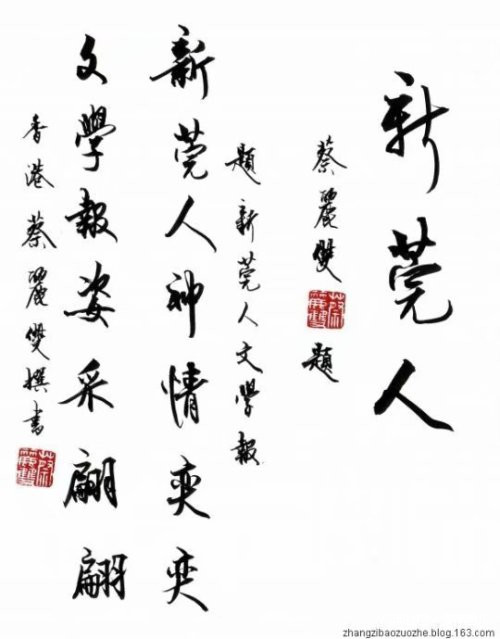 新莞人
蔡麗雙
題
題新莞人文學報
新莞人神情奕奕
文學報姿采翩翩
香港蔡麗雙撰書
zhangzibaozuozhe.blog.163.com